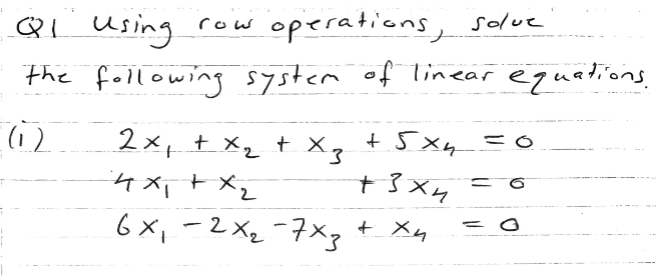 Q1 Using row operations, solve
the following system of linear equations.
(i) 2x₁ + x₂ + x₃ + 5x₄ = 0
4x₁ + x₂ + 3x₄ = 0
6x₁ - 2x₂ - 7x₃ + x₄ = 0